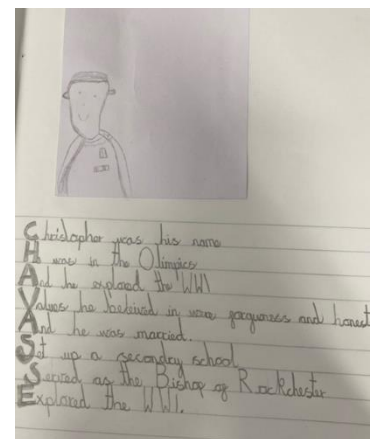 Christopher was his name
H was in the Olimpics
And he explored the WW1
Values he beleived in were and honest
And he was married.
Set up a secondry school
Served as the Bishop of Rockchester
Explored the WW1.